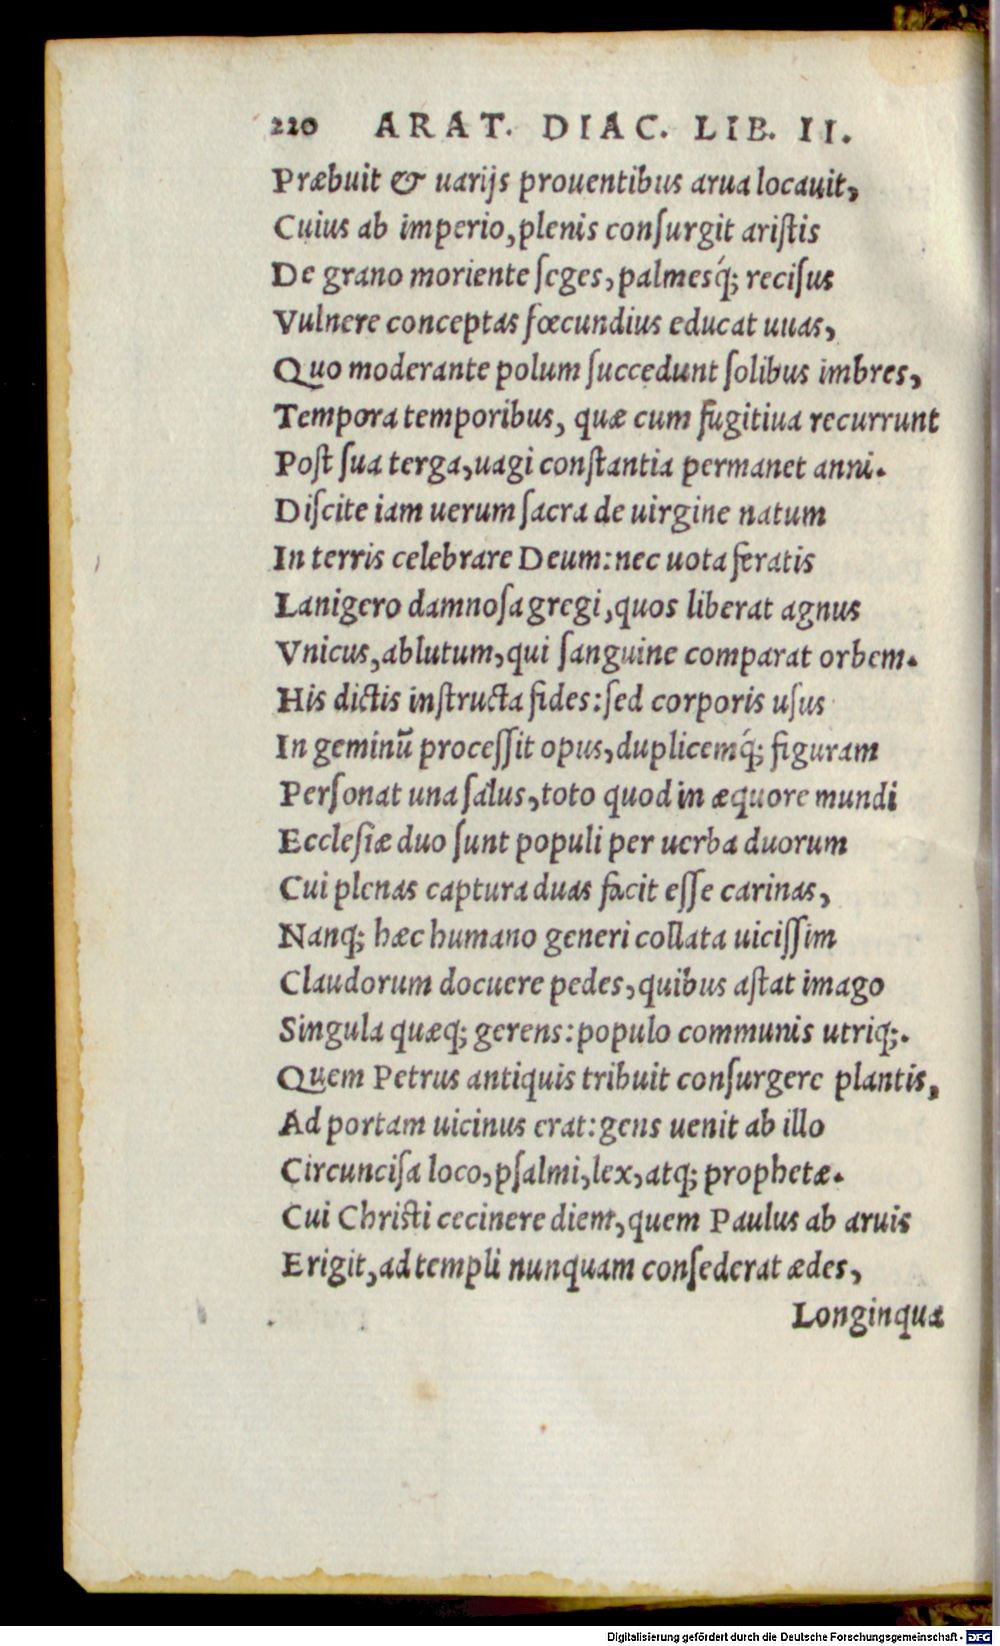 220 ARAT. DIAC. LIB. II.
Præbuit & uarijs prouentibus arua locauit,
Cuius ab imperio, plenis conſurgit ariſtis
De grano moriente ſeges, palmesq́; reciſus
Vulnere conceptas fœcundius educat uuas,
Quo moderante polum ſuccedunt ſolibus imbres,
Tempora temporibus, quæ cum fugitiua recurrunt
Poſt ſua terga, uagi conſtantia permanet anni.
Diſcite iam uerum ſacra de uirgine natum
In terris celebrare Deum: nec uota feratis
Lanigero damnoſa gregi, quos liberat agnus
Vnicus, ablutum, qui ſanguine comparat orbem.
His dictis inſtructa fides: ſed corporis uſus
In geminū proceſſit opus, duplicemq́; figuram
Perſonat una ſalus, toto quod in æquore mundi
Eccleſiæ duo ſunt populi per uerba duorum
Cui plenas captura duas facit eſſe carinas,
Nanq; hæc humano generi collata uiciſſim
Claudorum docuere pedes, quibus aſtat imago
Singula quæq; gerens: populo communis utriq;.
Quem Petrus antiquis tribuit conſurgere plantis,
Ad portam uicinus erat: gens uenit ab illo
Circunciſa loco, pſalmi, lex, atq; prophetæ.
Cui Chriſti cecinere diem, quem Paulus ab aruis
Erigit, ad templi nunquam conſederat ædes,
Longinqua
Digitalisierung gefördert durch die Deutsche Forschungsgemeinschaft - DFG